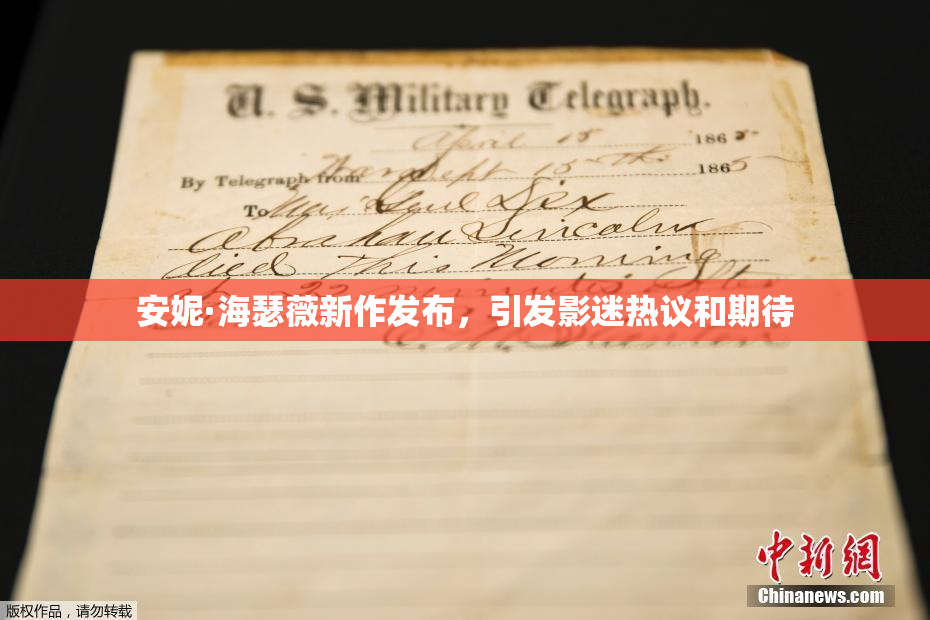 U. S. Military Telegraph.
April 15 1865
By Telegraph from War Dept 15th 1865
To Maj Genl Dix
Abraham Lincoln
died This Morning
at 22 minutes after
安妮·海瑟薇新作发布，引发影迷热议和期待
E. M. Stanton
中新网
Chinanews.com
版权作品，请勿转载